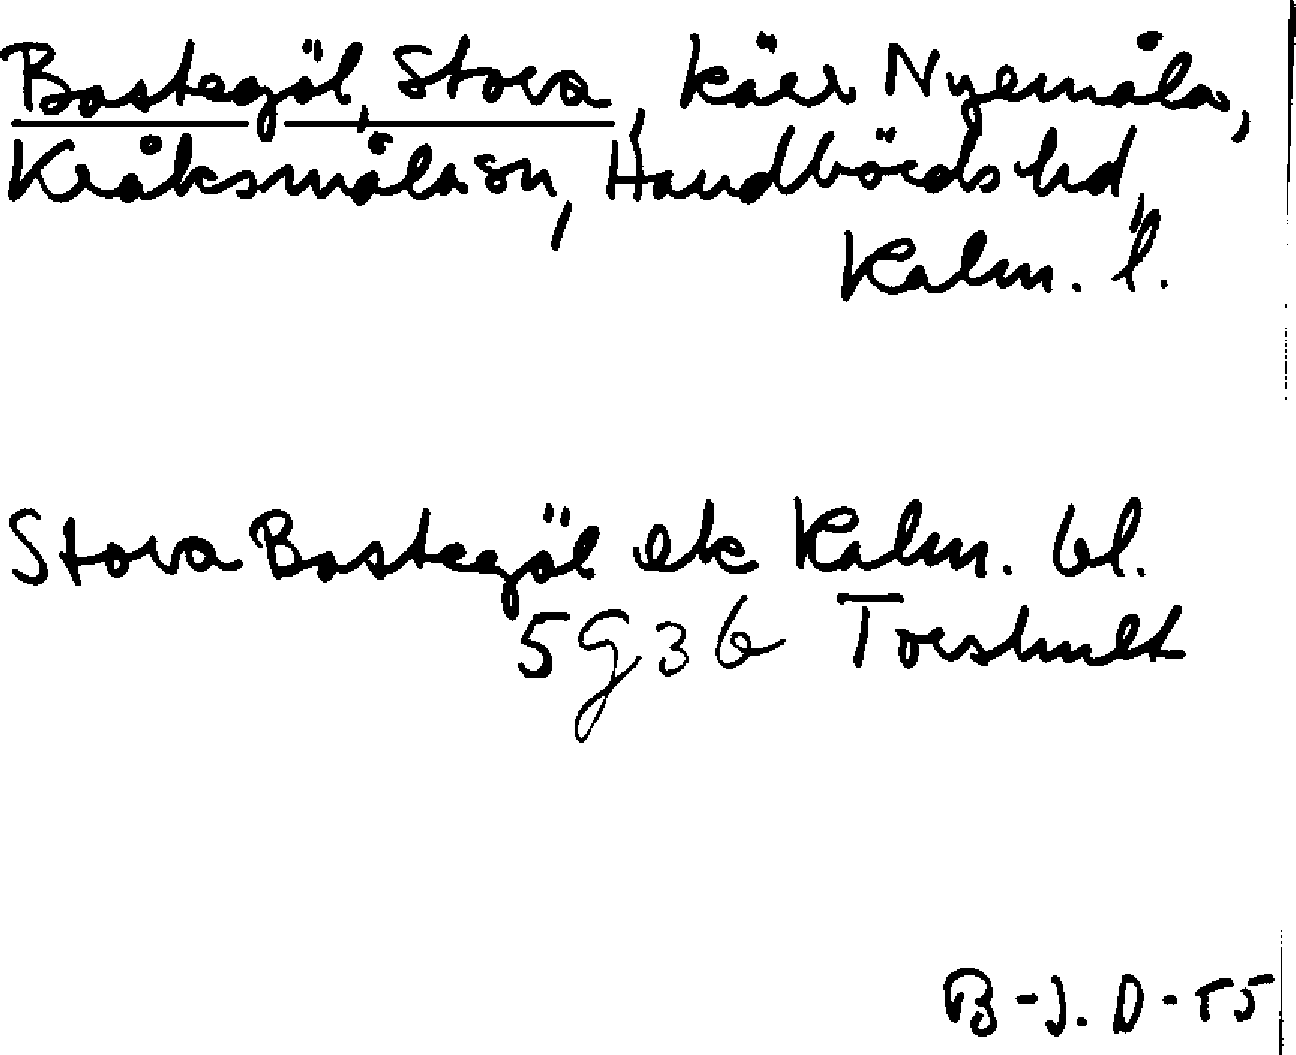 Bastegöl, Stora, kärr Nyemåla,
Kråksmåla sn, Handbörds hd,
Kalm. l.
Stora Bastegöl ek Kalm. bl.
5G3b Torshult
B-J. D-55